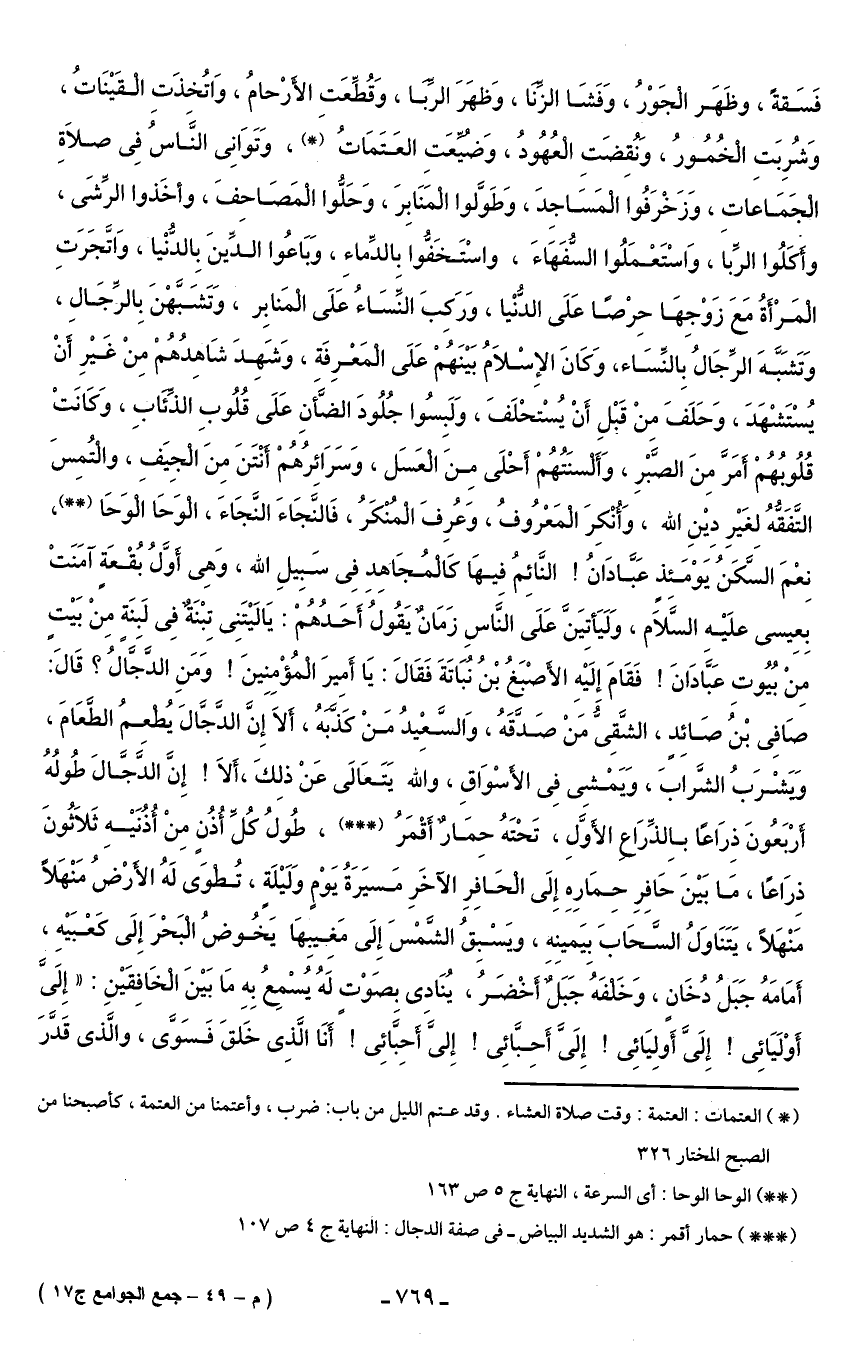 فَسَقةً ، وظَهَر الْجَوْرُ ، وَفَشَا الزِّنَا ، وَظَهَرَ الرِّبَا ، وَقُطِّعَت الأَرْحامُ ، وَاتُّخذَت الْقَيْنَاتُ ،
وَشُرِبَت الْخُمُورُ ، وَنُقضَت الْعُهُودُ ، وَضُيِّعَت العَتَمَاتُ (*) ، وَتَوَانى النَّاسُ فى صلاَة
الجَمَاعات ، وَزَخْرَفُوا الْمَسَاجدَ ، وَطَوَّلُوا الْمَنَابرَ ، وَحَلُّوا الْمَصَاحفَ ، وأخَذُوا الرِّشَى ،
وأَكَلُوا الرِّبا ، وَاسْتَعْمَلُوا السُّفَهَاءَ ، واسْتَخَفُّوا بالدِّماء ، وَبَاعُوا الدِّينَ بالدُّنْيا ، وَاتَّجَرَت
المَرْأَةُ مَعَ زَوْجهَا حرْصًا عَلَى الدُّنْيا ، وَرَكبَ النِّسَاءُ عَلَى المَنَابر ، وَتَشَبَّهْنَ بالرِّجَال ،
وَتَشبَّهَ الرِّجَالُ بالنِّسَاء، وَكَانَ الإسْلاَمُ بَيْنَهُمْ عَلَى الْمَعْرِفَة ، وَشَهدَ شَاهدُهُمْ منْ غَيْرِ أَنْ
يُسْتَشْهَدَ ، وَحَلَفَ منْ قَبْل أَنْ يُسْتحْلَفَ ، وَلَبسُوا جُلُودَ الضأْن عَلَى قُلُوب الذِّئَاب ، وَكَانَتْ
قُلُوبُهُمْ أمَرَّ منَ الصَّبْرِ ، وَأَلْسنَتُهُمْ أحْلَى منَ العَسَل ، وَسَرَائرُهُمْ أنْتَنَ منَ الْجيَف ، والْتُمسَ
التَّفَقُّهُ لغَيْر ديْن الله ، وَأُنْكرَ الْمَعْرُوفُ، وَعُرفَ الْمُنْكَرُ ، فَالنَّجَاءَ النَّجَاءَ ، الْوَحَا الْوَحَا (**)،
نعْمَ السَّكَنُ يَوْمَئذٍ عَبَّادَانُ ! النَّائمُ فيهَا كَالْمُجَاهد فى سَبيل الله ، وَهى أَوَّلُ بُقْعَة آمَنَتْ
بعيسى عليْه السَّلاَم ، وَلَيَأتيَنَّ عَلَى النَّاس زَمَانٌ يَقُولُ أحَدُهُمْ : يَالَيْتَنى تبْنَةٌ فى لَبنَةٍ منْ بَيْتٍ
منْ بُيُوت عبَّادَانَ ! فَقَامَ إلَيْه الأَصْبَغُ بْنُ نُبَاتَةَ فَقَالَ : يَا أميرَ الْمُؤْمنينَ ! وَمَن الدَّجَّالُ ؟ قَالَ:
صَافى بْنُ صَائد ، الشَّقىُّ مَنْ صَدَّقَهُ ، وَالسَّعيْدُ مَنْ كَذَّبَهُ ، أَلاَ إنَّ الدَّجَّالَ يُطْعمُ الطَّعَامَ ،
وَيَشْرَبُ الشَّرابَ ، وَيَمْشى فى الأَسْوَاق ، والله يَتَعَالَى عَنْ ذلكَ ،أَلاَ ! إنَّ الدَّجَّالَ طُولُهُ
أرْبَعُونَ ذرَاعًا بالذِّرَاعِ الأَوَّل ، تَحْتَهُ حمَارٌ أقْمَرُ (***) ، طُولُ كُلِّ أُذُنٍ منْ أُذُنَيْه ثَلاَثُونَ
ذرَاعًا ، مَا بَيْنَ حَافر حمَاره إلَى الْحَافر الآخَر مَسيَرَةُ يَوْمٍ وَلَيْلَةٍ ، تُطْوَى لَهُ الأَرْضُ مَنْهَلاً
مَنْهَلاً ، يَتَنَاوَلُ السَّحَابَ بيَمينه ، ويَسْبقُ الشَّمْسَ إلَى مَغيبهَا يَخُوضُ الْبَحْرَ إلَى كَعْبَيْه ،
أمَامَهُ جَبَلُ دُخَان ، وَخَلْفَهُ جَبَلٌ أخْضَرُ ، يُنَادى بصَوْت لَهُ يُسْمعُ به مَا بَيْنَ الْخَافقَيْن : « إلَىَّ
أوْلَيَائى ! إلَىَّ أَوليَائى ! إلَىَّ أحبَّائى ! إلىَّ أحبَّائى ! أنَا الَّذى خَلقَ فَسَوَّى ، والَّذى قَدَّرَ
(*) العتمات : العتمة : وقت صلاة العشاء . وقد عتم الليل من باب: ضرب ، وأعتمنا من العتمة ، كأصبحنا من
الصبح المختار ٣٢٦
(**) الوحا الوحا : أى السرعة ، النهاية ج ٥ ص ١٦٣
(***) حمار أقمر : هو الشديد البياض ـ فى صفة الدجال : النهاية ج ٤ ص ١٠٧
ـ ٧٦٩ ـ
( م – ٤٩ – جمع الجوامع ج١٧ )